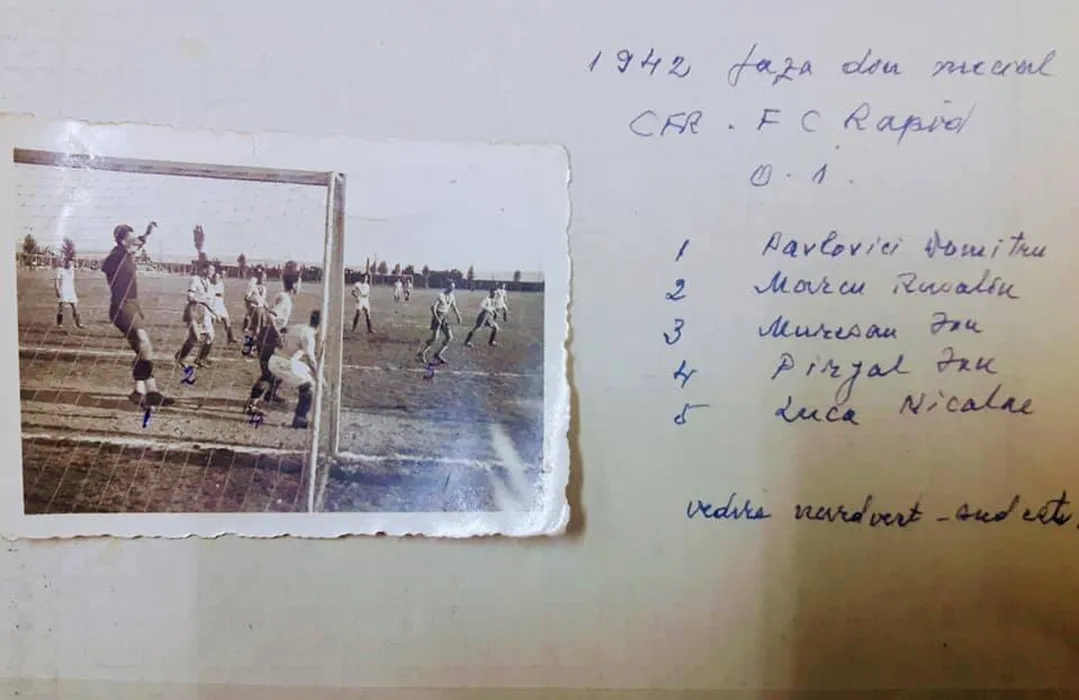 1942 faza din meciul
CFR . F C Rapid
0 . 1 .
1 Pavlovici Dumitru
2 Marcu Rozalin
3 Muresan Ion
4 Pirjal Ion
5 Luca Nicolae
vedere nordvest - sud est.
1
2
3
4
5